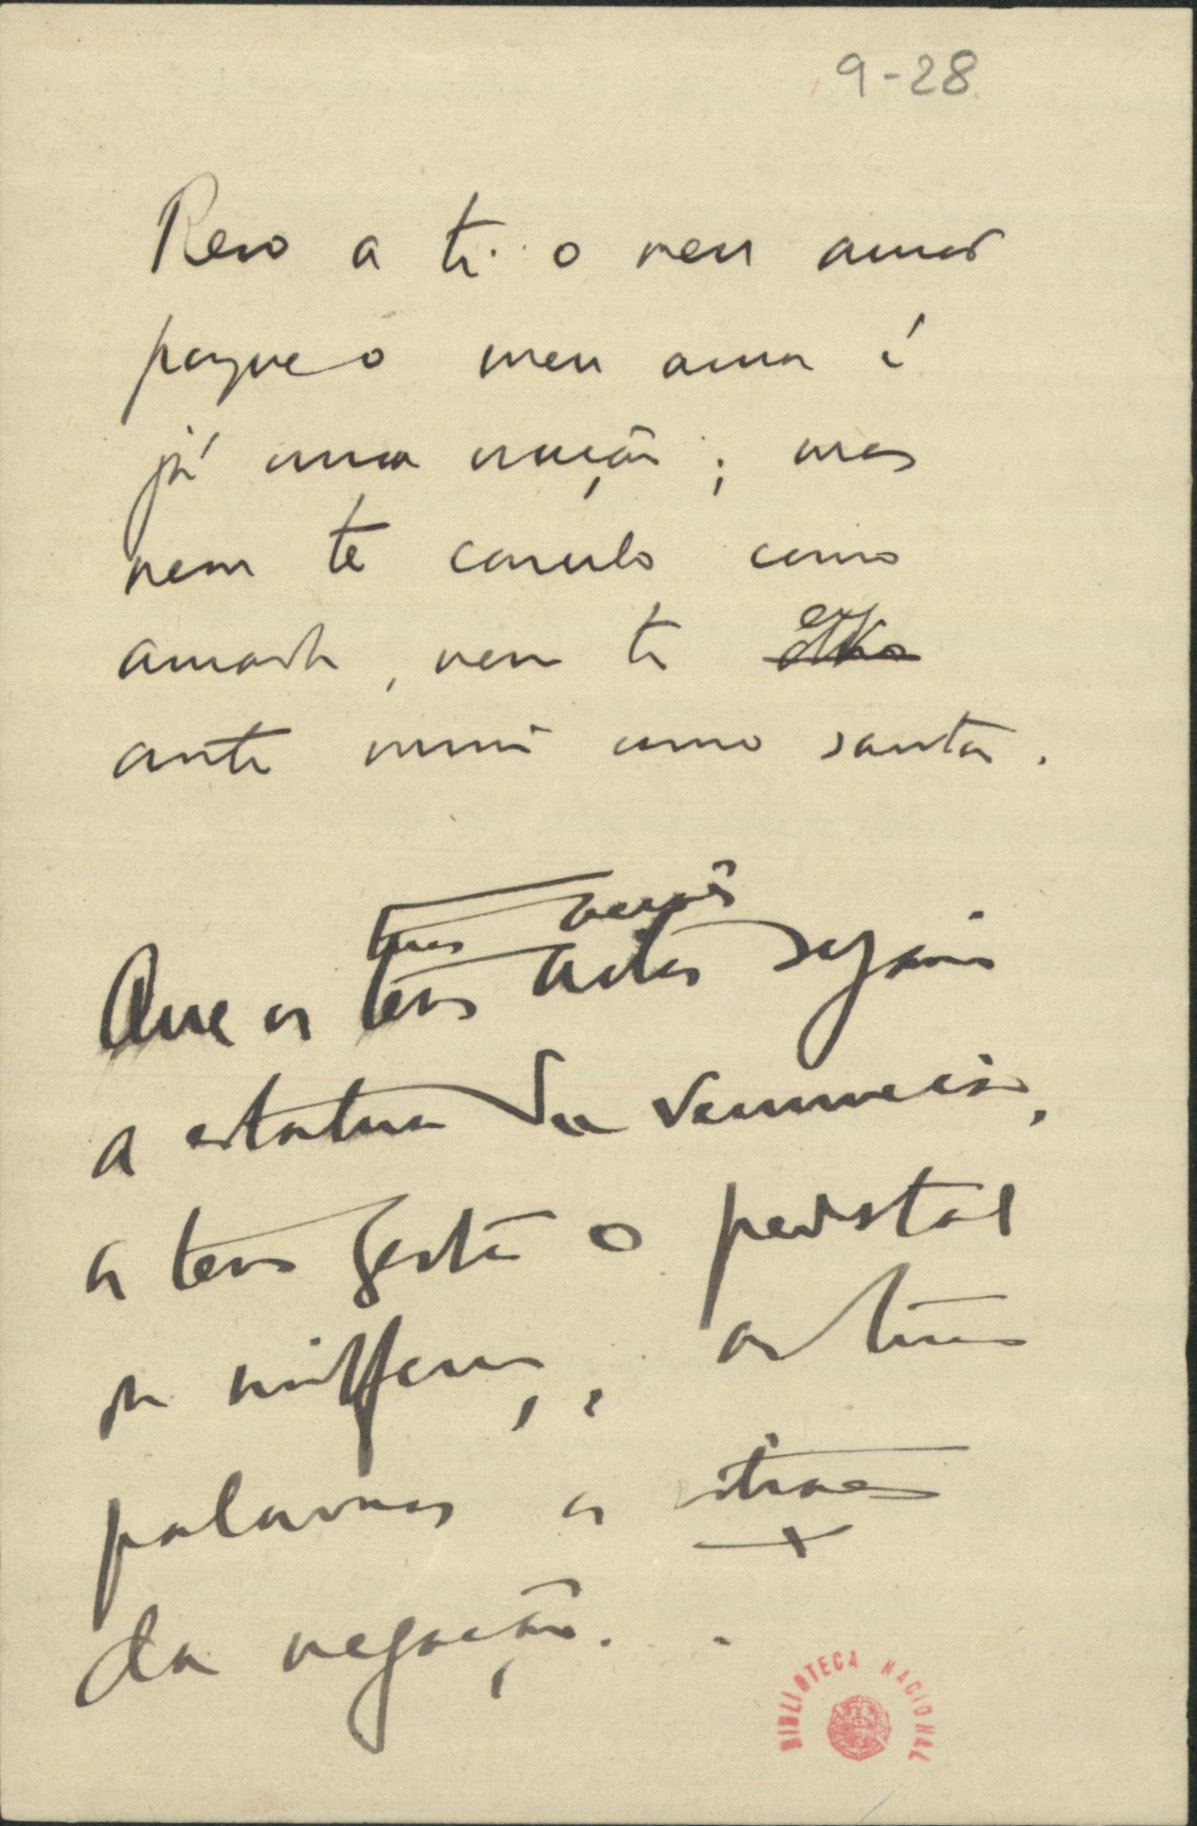 9-28
Rezo a ti o meu amor
porque o meu amor é
já uma oração; mas
nem te concebo como
amada, nem te
ante mim como santa.
teus
Que os teus actos sejam
a estatua da renuncia,
os teus gestos o pedestal
da indifferença, as tuas
palavras os vitraes
da negação.
BIBLIOTECA NACIONAL